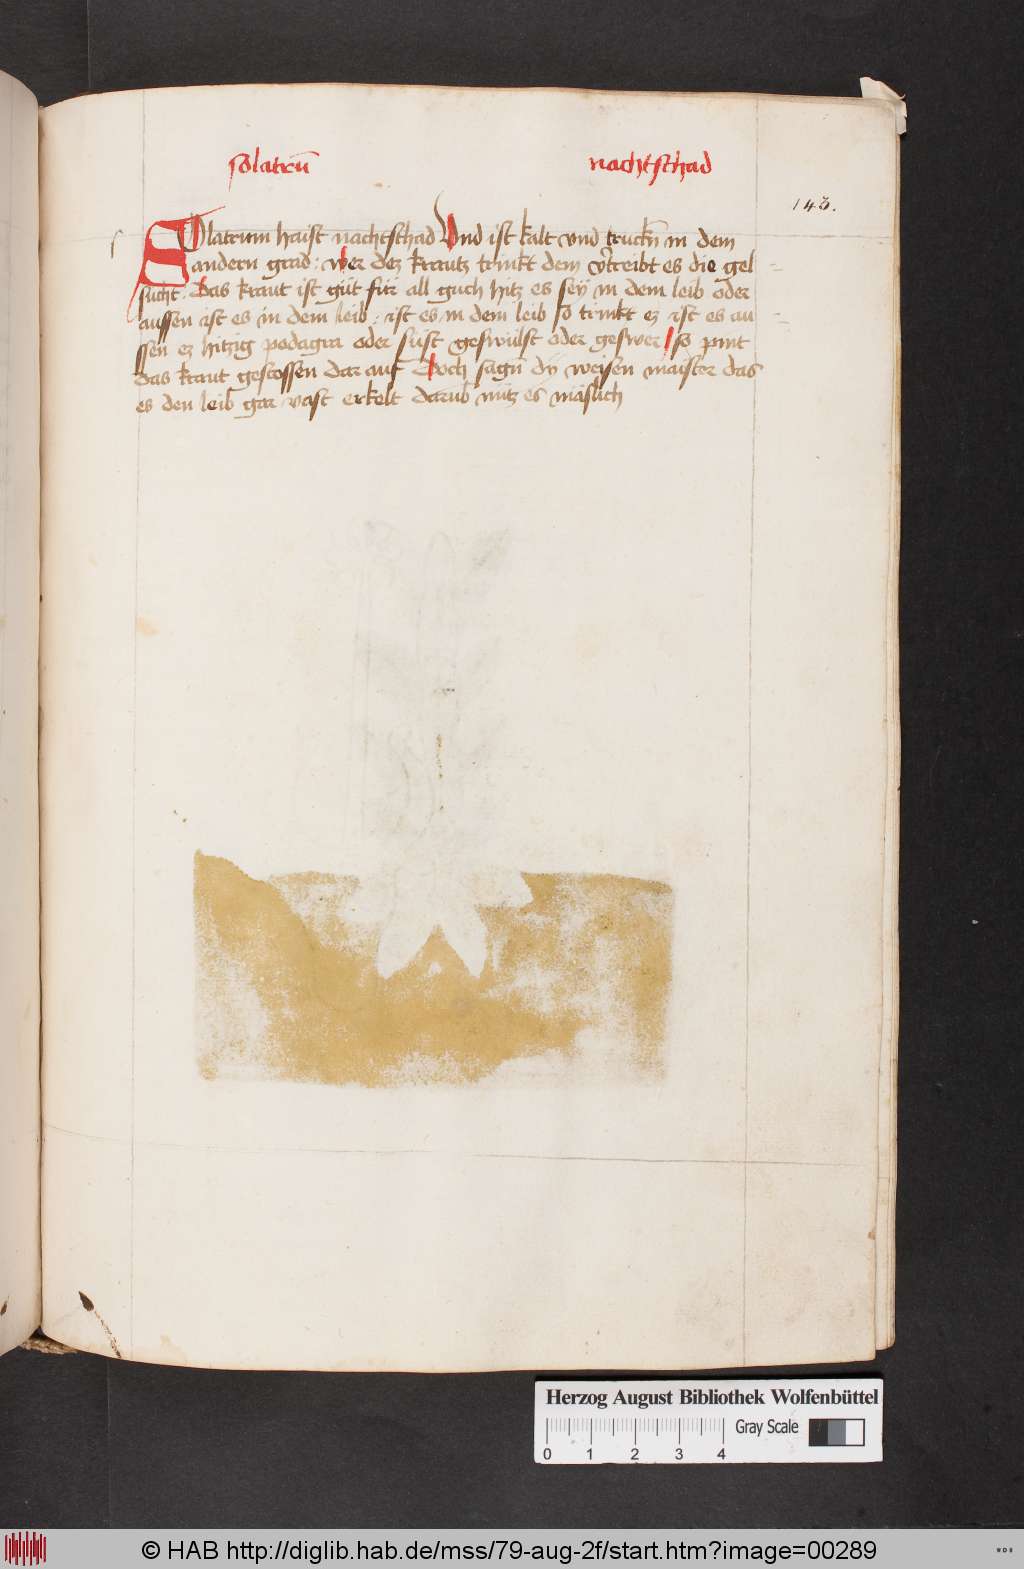 solatrū nachtschad
143.
Solatrum haist nachtschad Vnd ist kalt vnd truckn in dem
andern grad : wer dez krautz trinkt dem v͛treibt es die gel
sucht : Das kraut ist gůt für all gůch hitz es seÿ in dem leib oder
aussen ist es in dem leib : ist es in dem leib so trinkt ez ist es au
ssen ez hitzig podagra oder süst geswülst oder geswer so pint
das kraut gestossen dar auf Doch sagn̄ dÿ weisen maister das
es den leib gar vast erkelt darūb nütz es mäslich
Herzog August Bibliothek Wolfenbüttel
Gray Scale
0 1 2 3 4
© HAB http://diglib.hab.de/mss/79-aug-2f/start.htm?image=00289